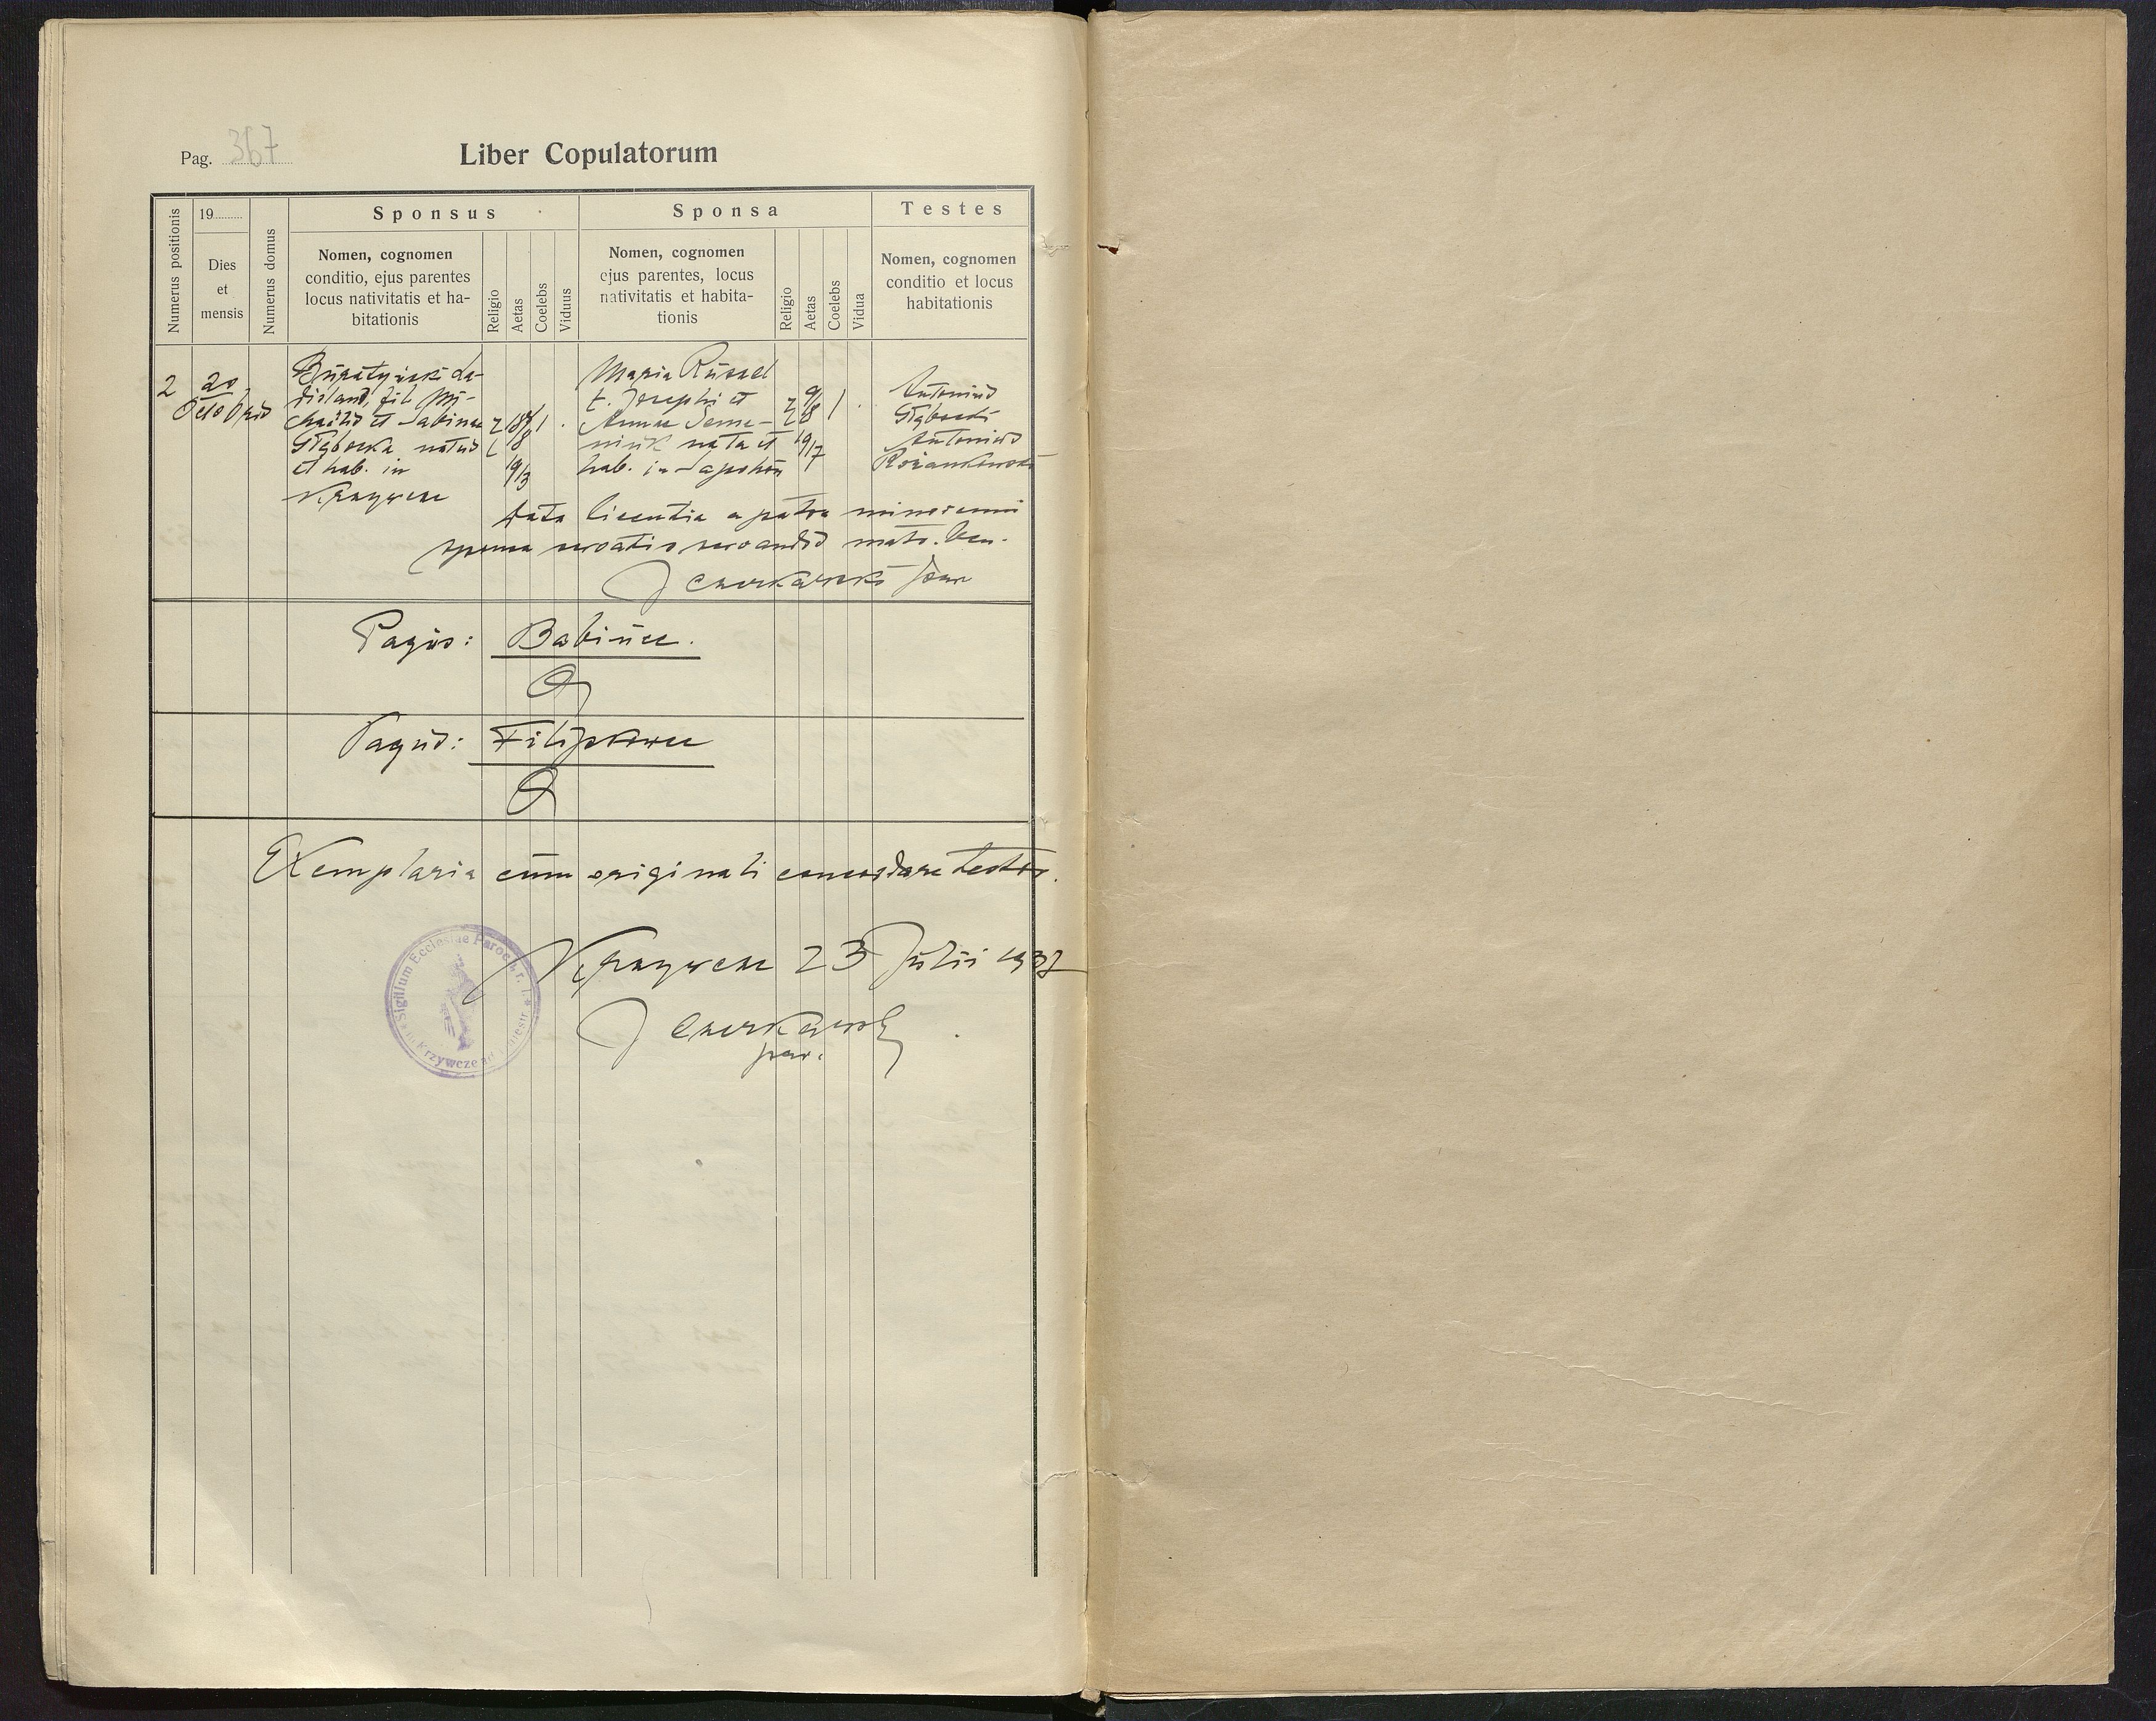 Pag. 367
Liber Copulatorum
Numerus positionis
19
Dies
et
mensis
Numerus domus
Sponsus
Nomen, cognomen
conditio, ejus parentes
locus nativitatis et ha-
bitationis
Religio
Aetas
Coelebs
Viduus
Sponsa
Nomen, cognomen
ejus parentes, locus
nativitatis et habita-
tionis
Religio
Aetas
Coelebs
Vidua
Testes
Nomen, cognomen
conditio et locus
habitationis
2
20
Octobris
fil. Mi-
chaelis et Sabinae
Głębocka natus
et hab. in
Krzywcze
18
19/3
1
Maria
f. Josephi et
Annae Seme-
niuk nata et
hab. in
9/8
19/17
1
Antonius
Głębocki
Antonius
Rożankowski
Data licentia a patre minorenni
sponsae servatis servandis matr. ben.
J Czerkawski par
Pagus: Babińce.
Pagus: Filipkowce
Exemplaria cum originali concordare testor.
Krzywcze 23 Julii 1937
J Czerkawski
par.
Sigillum Ecclesiae Paroch. r. l.
Krzywcze